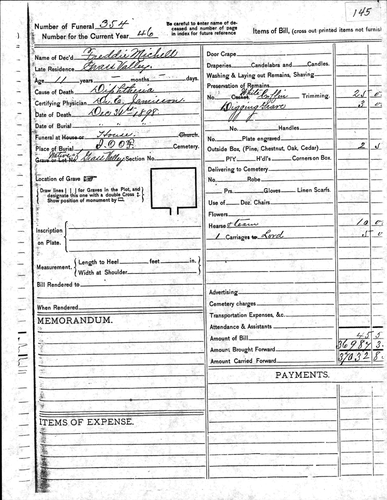 145
Number of Funeral 354
Number for the Current Year 46
Be careful to enter name of deceased and number of page in index for future reference
Items of Bill, (cross out printed items not furnis
Name of Dec'd Freddie Michell
Late Residence Grass Valley
Age 11 years - months - days.
Cause of Death Diphtheria
Certifying Physician Dr. C. Jamieson
Date of Death Dec 31st 1898
Date of Burial " "
Funeral at House. Church,
Place of Burial I.O.O.F. Cemetery.
Grave or Lot No. Grass Valley Section No.
Location of Grave
Draw lines ( ) for Graves in the Plot, and designate this one with a double Cross
Show position of monument by
Inscription on Plate.
Measurement. Length to Heel feet in.
Width at Shoulder
Bill Rendered to
When Rendered
MEMORANDUM.
ITEMS OF EXPENSE.
Door Crape
Draperies Candelabra and Candles.
Washing & Laying out Remains, Shaving
Preservation of Remains
No. Casket White Coffin Trimming. 25 0
Digging Grave 3 0
No. Handles
Plate engraved
Outside Box, (Pine, Chestnut, Oak, Cedar) 2 5
PIY H'd's Corners on Box.
Delivering to Cemetery
No. Robe
Prs. Gloves Linen Scarfs.
Use of Doz. Chairs
Flowers
Hearse & team 10 0
1 Carriages to Lord 5 0
Advertising
Cemetery charges
Transportation Expenses, &c.
Attendance & Assistants
Amount of Bill 45 5
Amount Brought Forward 36987 3
Amount Carried Forward 37032 8
PAYMENTS.